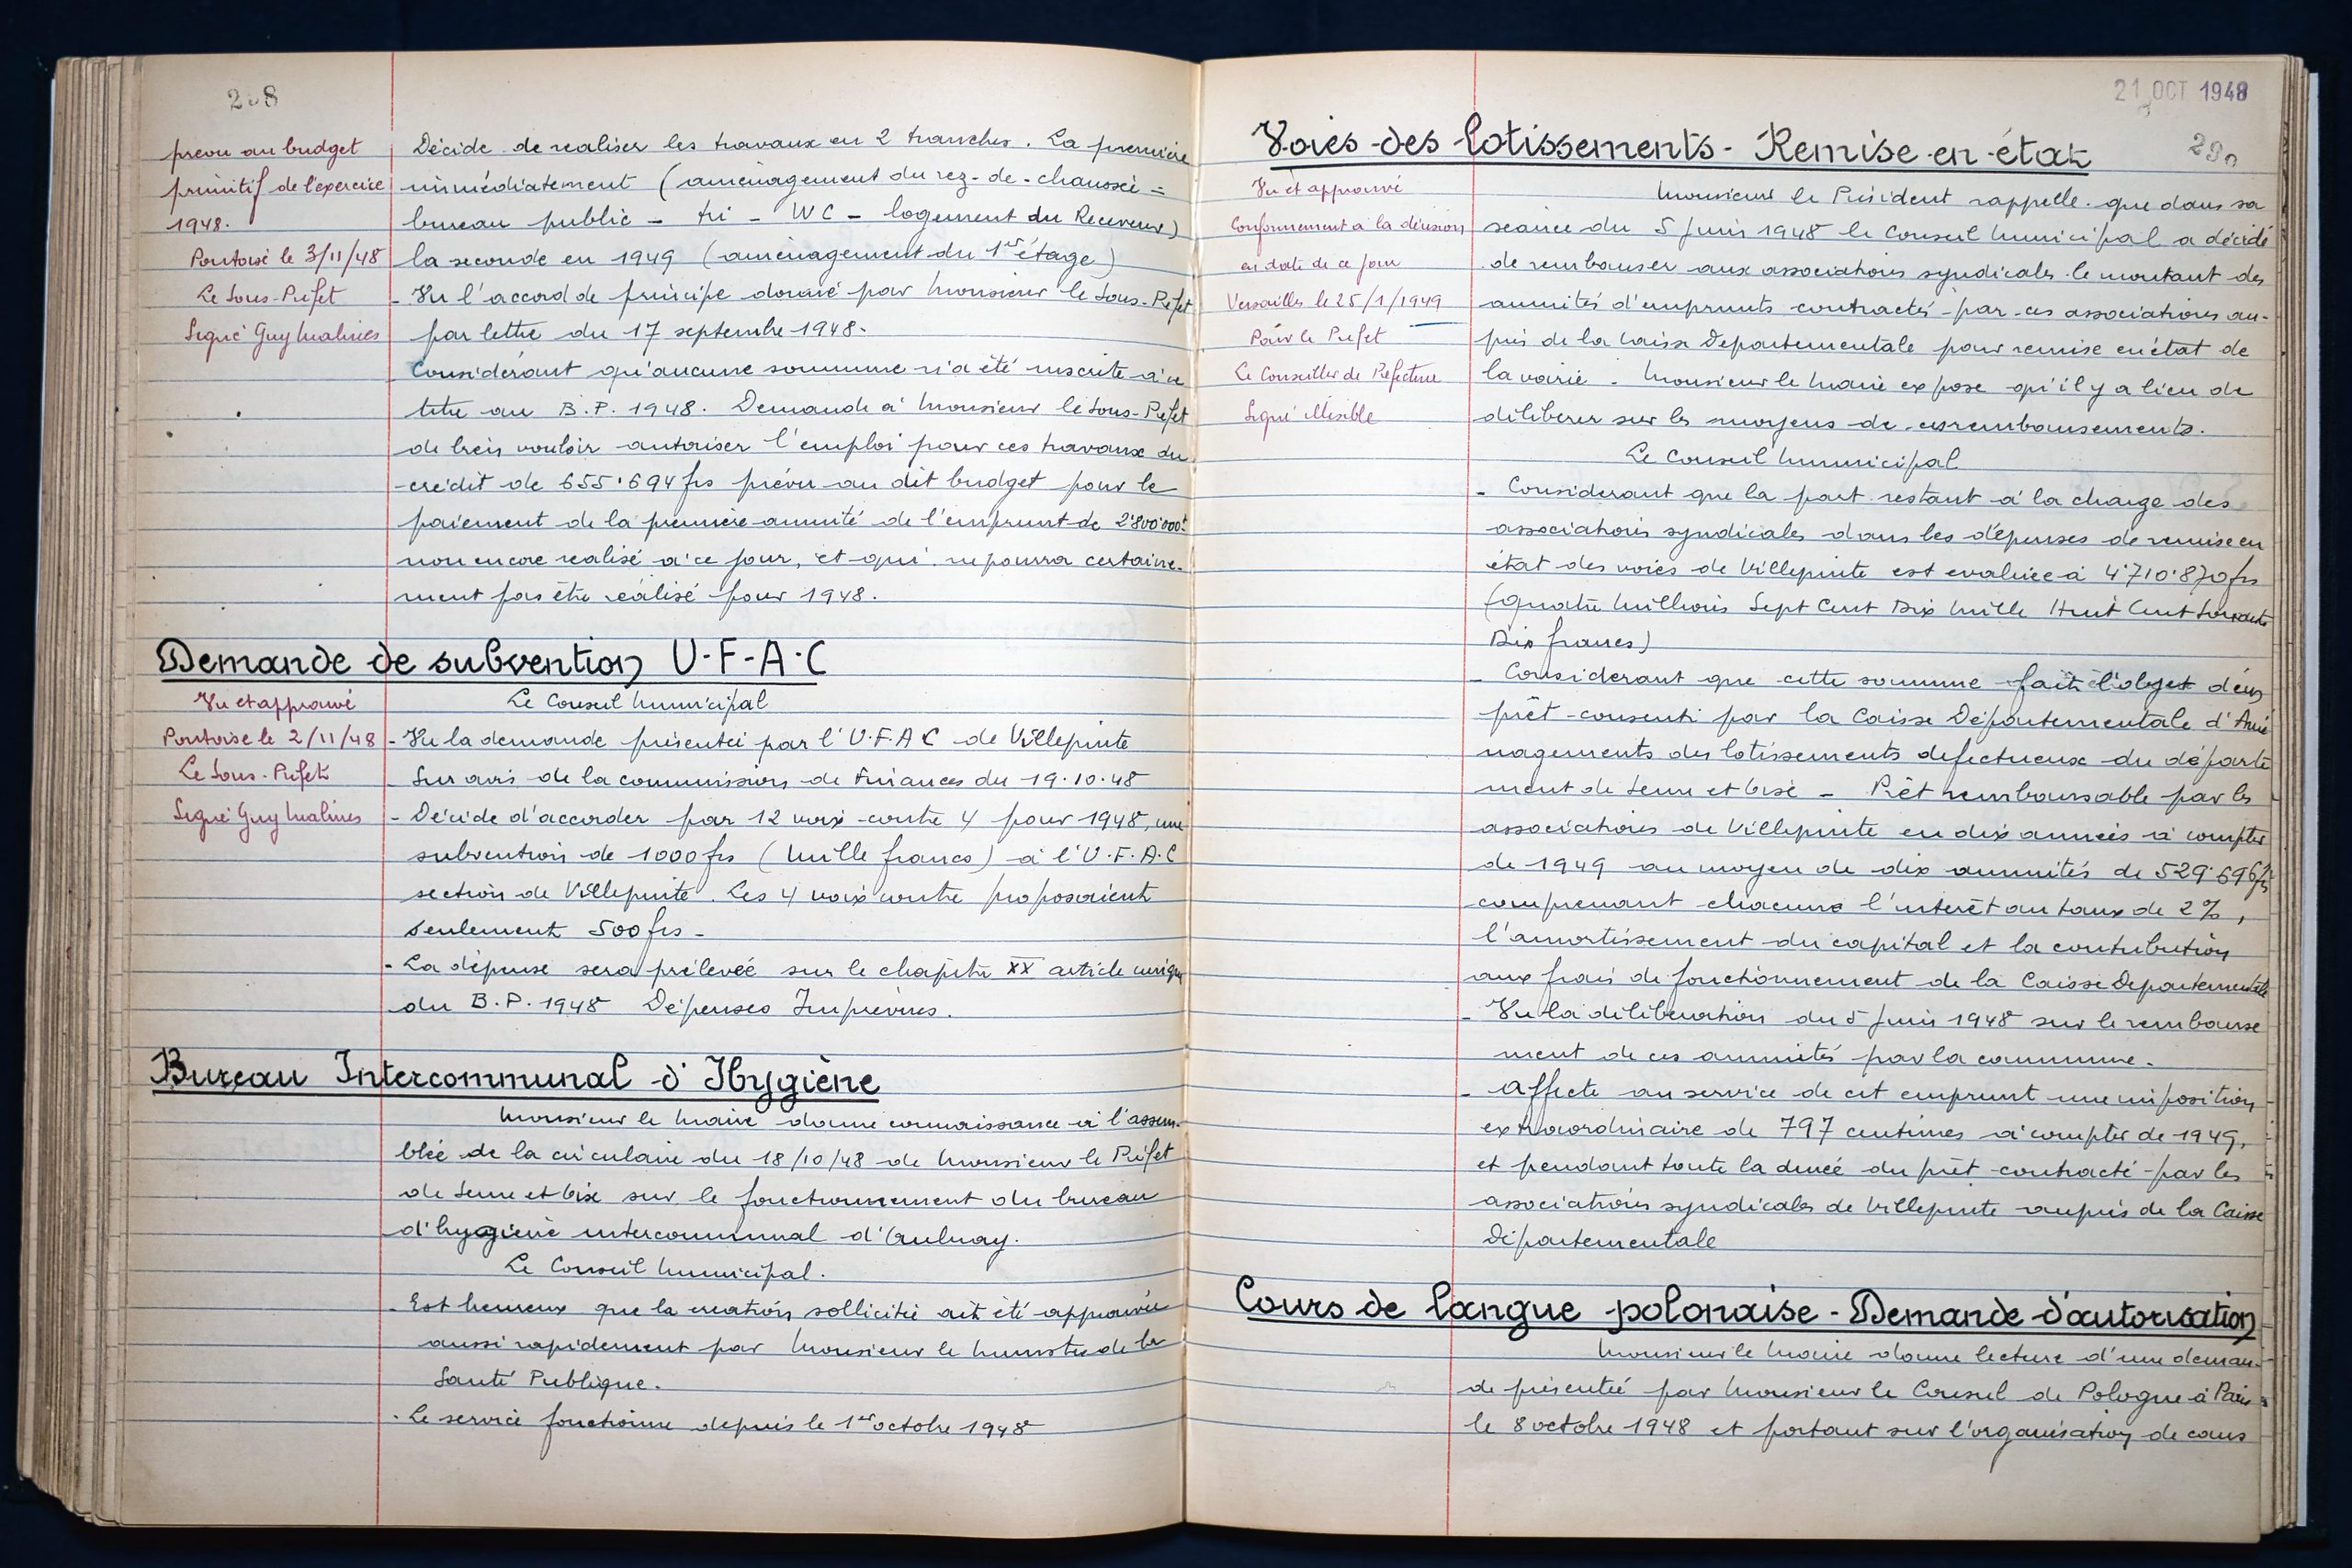 208
prévu au budget
primitif de l'exercice
1948.
Pontoise le 3/11/48
Le Sous-Préfet
Signé Guy Malines
Décide de realiser les travaux en 2 tranches. La première
immédiatement (aménagement du rez-de-chaussée =
bureau public - tri - WC - logement du Receveur)
la seconde en 1949 (aménagement du 1er étage)
- Vu l'accord de principe donné par Monsieur le Sous-Préfet
par lettre du 17 septembre 1948.
Considérant qu'aucune somme n'a été inscrite à ce
titre au B.P. 1948. Demande à Monsieur le Sous-Préfet
de bien vouloir autoriser l'emploi pour ces travaux du
crédit de 655.694 frs prévu au dit budget pour le
paiement de la première annuité de l'emprunt de 2.800.000f
non encore realisé à ce jour, et qui ne pourra certaine-
ment pas être réalisé pour 1948.
Demande de subvention U.F.A.C
Vu et approuvé
Pontoise le 2/11/48
Le Sous-Préfet
Signé Guy Malines
Le Conseil Municipal
- Vu la demande présentée par l'U.F.A.C de Villepinte
- Sur avis de la commission de Finances du 19.10.48
- Décide d'accorder par 12 voix contre 4 pour 1948, une
subvention de 1000 frs (Mille francs) à l'U.F.A.C
section de Villepinte. Les 4 voix contre proposaient
seulement 500 frs -
- La dépense sera prélevée sur le chapitre XX article unique
du B.P. 1948 Dépenses Imprévues.
Bureau Intercommunal d'Hygiène
Monsieur le Maire donne connaissance à l'assem-
blée de la circulaire du 18/10/48 de Monsieur le Préfet
de Seine et Oise sur le fonctionnement du bureau
d'hygiène intercommunal d'Aulnay.
Le Conseil Municipal.
- Est heureux que la création sollicitée ait été approuvée
aussi rapidement par Monsieur le Ministre de la
Santé Publique.
- Le service fonctionne depuis le 1er octobre 1948
21 OCT 1948
Voies des lotissements - Remise en état
Vu et approuvé
Conformément à la décision
en date de ce jour
Versailles le 25/1/1949
Pour le Préfet
Le Conseiller de Préfecture
Signé illisible
Monsieur le Président rappelle que dans sa
séance du 5 Juin 1948 le Conseil Municipal a décidé
de rembourser aux associations syndicales le montant des
annuités d'emprunts contractés par ces associations au-
près de la Caisse Departementale pour remise en état de
la voirie. Monsieur le Maire expose qu'il y a lieu de
délibérer sur les moyens de ces remboursements.
Le Conseil Municipal
- Considerant que la part restant à la charge des
associations syndicales dans les dépenses de remise en
état des voies de Villepinte est evaluée à 4.710.870 frs
(Quatre Millions Sept Cent Dix Mille Huit Cent Soixante
Dix francs)
- Considerant que cette somme fait l'objet d'un
prêt consenti par la Caisse Départementale d'Amé
nagements des lotissements defectueux du départe
ment de Seine et Oise - Prêt remboursable par les
associations de Villepinte en dix années à compter
de 1949 au moyen de dix annuités de 529.696 frs
comprenant chacune l'intérêt au taux de 2%,
l'amortissement du capital et la contribution
aux frais de fonctionnement de la Caisse Departementale
- Vu la délibération du 5 Juin 1948 sur le rembourse
ment de ces annuités par la commune.
- Affecte au service de cet emprunt une imposition
extraordinaire de 797 centimes à compter de 1949,
et pendant toute la durée du prêt contracté par les
associations syndicales de Villepinte auprès de la Caisse
Départementale
Cours de langue polonaise - Demande d'autorisation
Monsieur le Maire donne lecture d'une deman-
de présentée par Monsieur le Consul de Pologne à Paris
le 8 octobre 1948 et portant sur l'organisation de cours